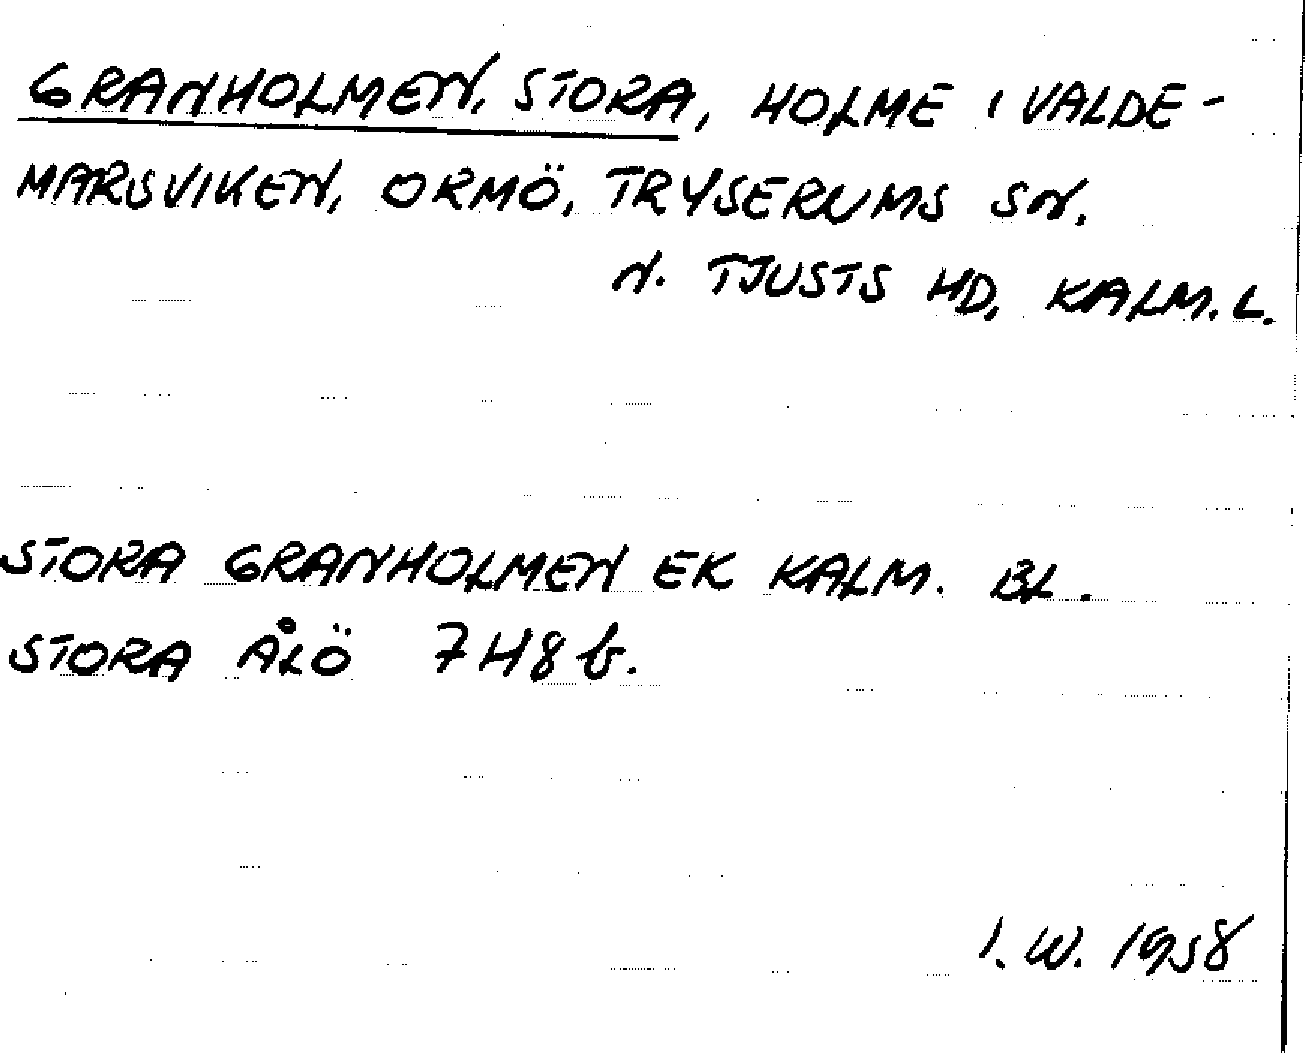 GRANHOLMEN, STORA, HOLME I VALDE-
MARSVIKEN, ORMÖ, TRYSERUMS SN.
N. TJUSTS HD, KALM. L.
STORA GRANHOLMEN EK KALM. BL.
STORA ÅLÖ 7H8b.
I. W. 1958